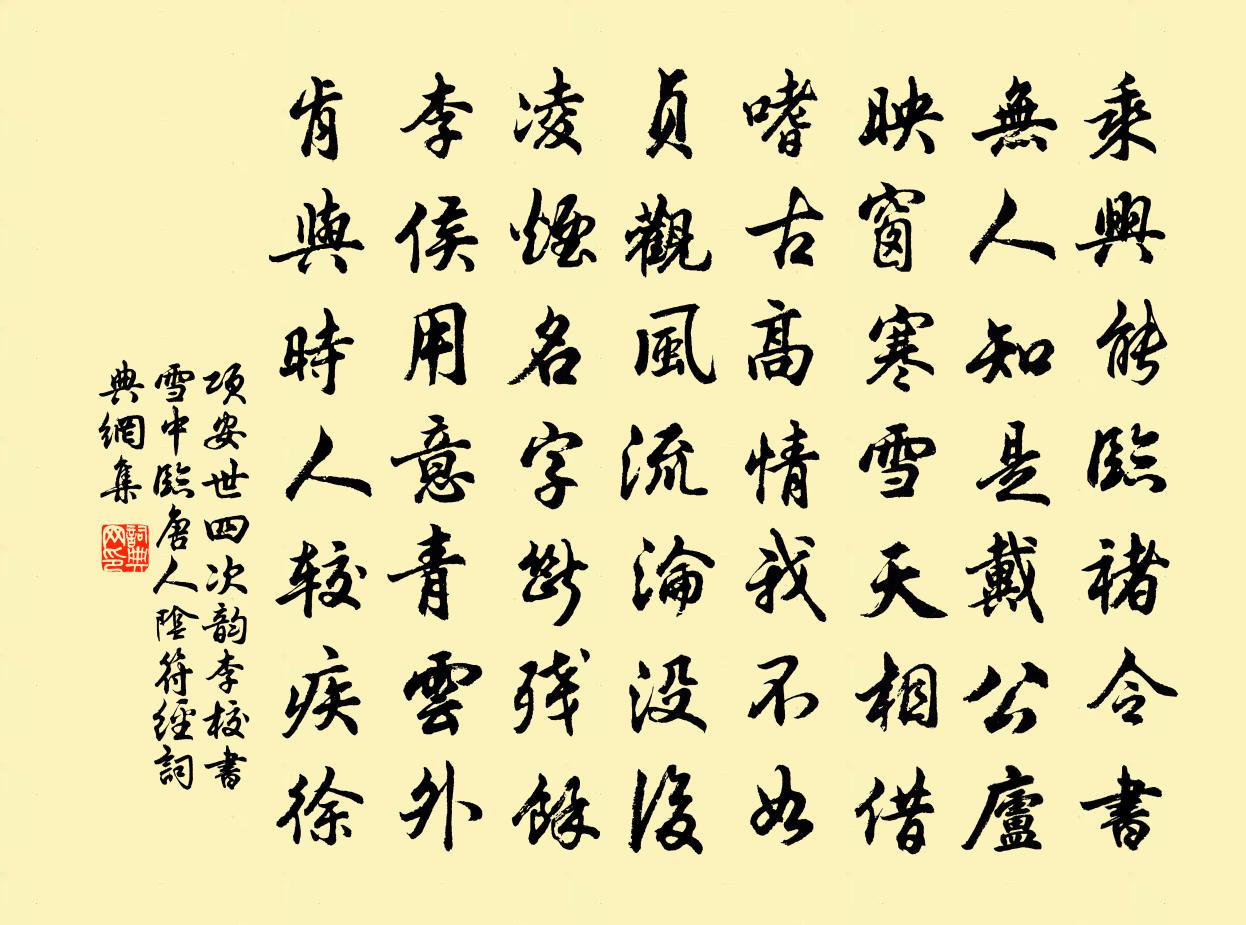 乘興能臨褚令書
無人知是戴公廬
映窗寒雪天相借
嗜古高情我不如
貞觀風流淪没後
凌煙名字斷殘餘
李侯用意青雲外
肯與時人較疾徐
項安世四次韵李校書
雪中臨唐人陰符經詞
典網集
詞典
网印